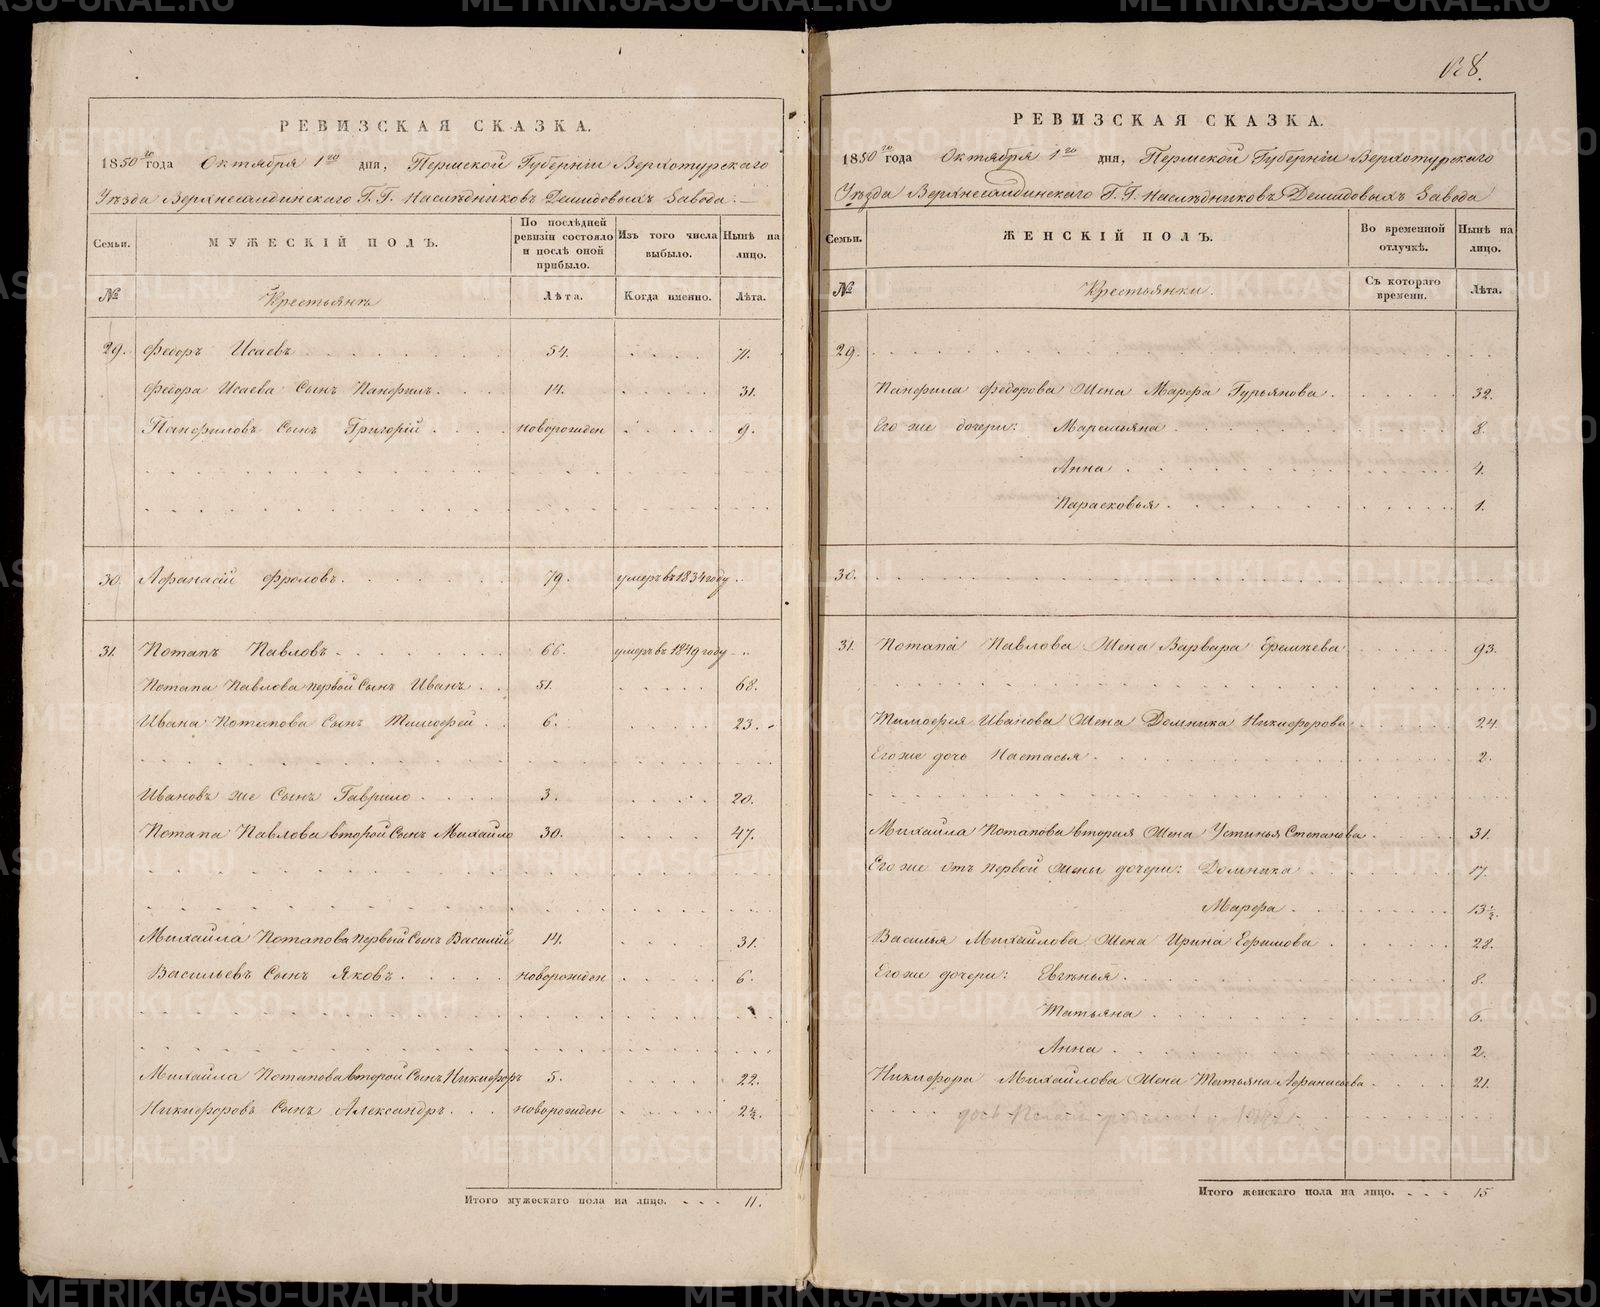 РЕВИЗСКАЯ СКАЗКА.
1850го года Октября 1го дня, Пермской Губернiи Верхотурскаго
Уѣзда Верхнесалдинскаго Г.Г. Наслѣдниковъ Демидовыхъ Завода.
Семьи. МУЖЕСКIЙ ПОЛЪ. По послѣдней ревизiи состояло и послѣ оной прибыло. Изъ того числа выбыло. Нынѣ на лицо.
№ Крестьянъ Лѣта. Когда именно. Лѣта.
29. Федоръ Исаевъ 54. 71.
Федора Исаева Сынъ Панфилъ. 14. 31.
Панфиловъ Сынъ Григорiй новорожден 9.
30. Афанасiй Фроловъ. 79. умеръ въ 1834 году
31. Потапъ Павловъ. 66. умеръ въ 1849 году
Потапа Павлова первой Сынъ Иванъ 51. 68.
Ивана Потапова Сынъ Тимофей 6. 23.
Ивановъ же Сынъ Гаврило 3. 20.
Потапа Павлова второй Сынъ Михайло 30. 47.
Михайла Потапова первый Сынъ Василiй 14. 31.
Васильевъ Сынъ Яковъ. новорожден 6.
Михайла Потапова второй Сынъ Никифоръ 5. 22.
Никифоровъ Сынъ Александръ. новорожден 2½.
Итого мужескаго пола на лицо. 11.
128.
РЕВИЗСКАЯ СКАЗКА.
1850го года Октября 1го дня, Пермской Губернiи Верхотурскаго
Уѣзда Верхнесалдинскаго Г.Г. Наслѣдниковъ Демидовыхъ Завода
Семьи. ЖЕНСКIЙ ПОЛЪ. Во временной отлучкѣ. Нынѣ на лицо.
№ Крестьянки. Съ котораго времени. Лѣта.
29.
Панфила Федорова Жена Марфа Гурьянова. 32.
Его же дочери: Маремьяна 8.
Анна 4.
Парасковья. 1.
30.
31. Потапа Павлова Жена Варвара Еремѣева 93.
Тимофея Иванова Жена Домника Никифорова 24.
Его же дочь Настасья 2.
Михайла Потапова вторая Жена Устинья Степанова 31.
Его же отъ первой жены дочери: Домника 17.
Марфа 13½.
Василья Михайлова Жена Ирина Ефимова 28.
Его же дочери: Евгѣнья. 8.
Татьяна 6.
Анна 2.
Никифора Михайлова Жена Татьяна Афанасьева 21.
дочь
Итого женскаго пола на лицо. 15
METRIKI.GASO-URAL.RU